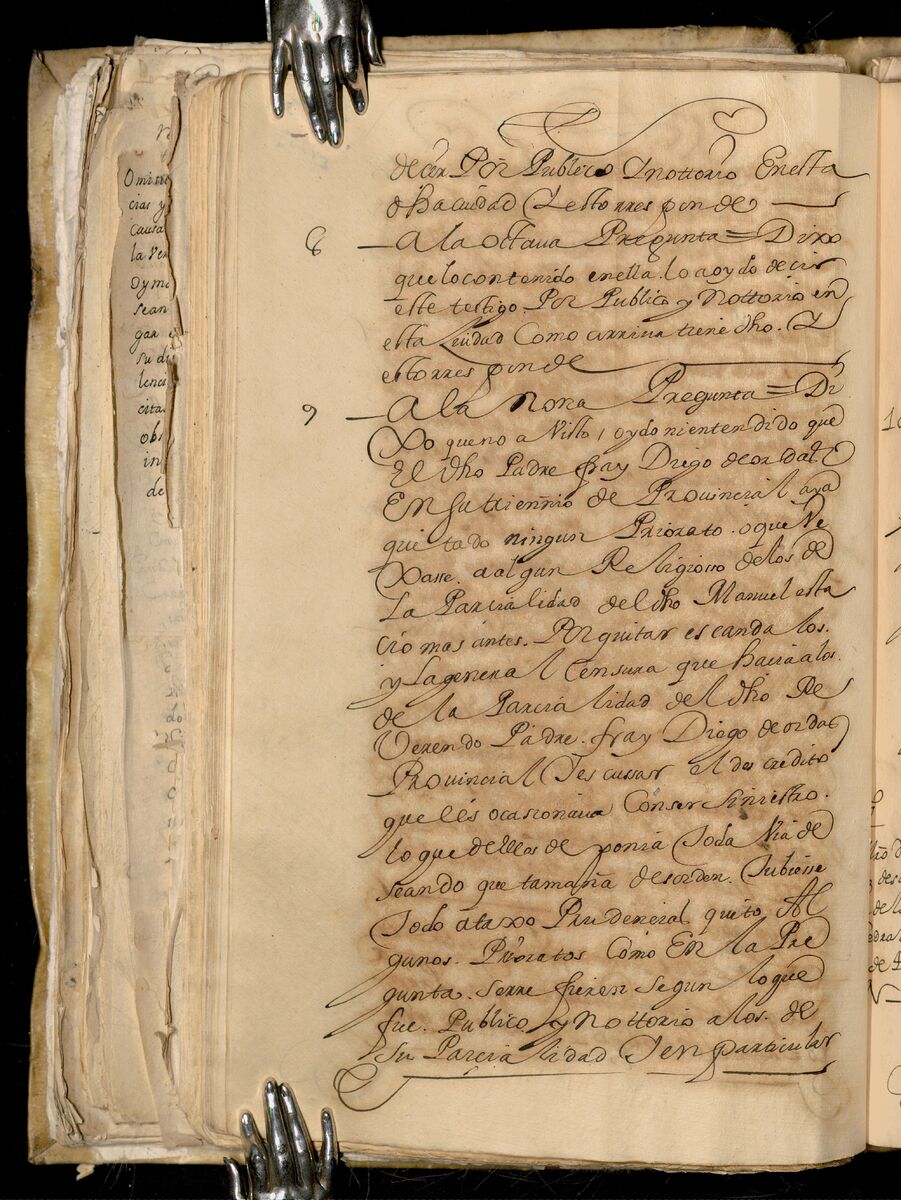 Omitie
cias y
Causa
la Ver
Oymo
sean
gar e
su di
lenci
citas
obs
in
de
decer Por Publico Y nottorio En esta
dha ciudad Y esto rresponde
8 — A la octava Pregunta = Dixo
que lo contenido en ella. lo a oydo decir
este testigo. Por Publico y Nottorio en
esta Ciudad Como arriva tiene dho. Y
esto rresponde
9 — A la nona Pregunta = Di
Xo que no a Visto, oydo ni entendido que
El dho Padre fray Diego de ordas
En su trienio de Provincial aya
quitado ningun Priorato. o que Ve
Xase. a algun Religiosso de los de
La Parcialidad del dho Manuel esta
cio mas antes. Por quitar escandalos.
y La general Censura que hacia a los.
de la Parcialidad del dho Re
Verendo Padre. fray Diego de ordas
Provincial Y escussar el des credito
que les ocasionava Con ser Siniestro.
lo que dellos de ponia Toda Via de
seando que tamaña desorden. Tubiesse
Todo ataxo Prudencial quito Al
gunos. Prioratos Como En la Pre
gunta. se rre fieren segun lo que
fue. Publico y Nottorio a los. de
Su Parcialidad Y en particular